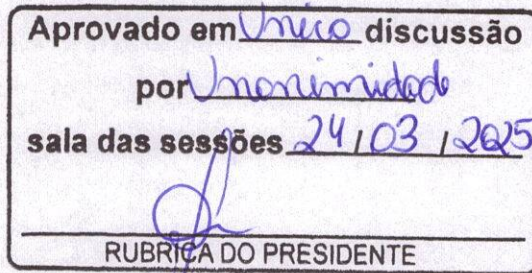 Aprovado em Único discussão
por Unanimidade
sala das sessões 24 / 03 / 2025
RUBRICA DO PRESIDENTE